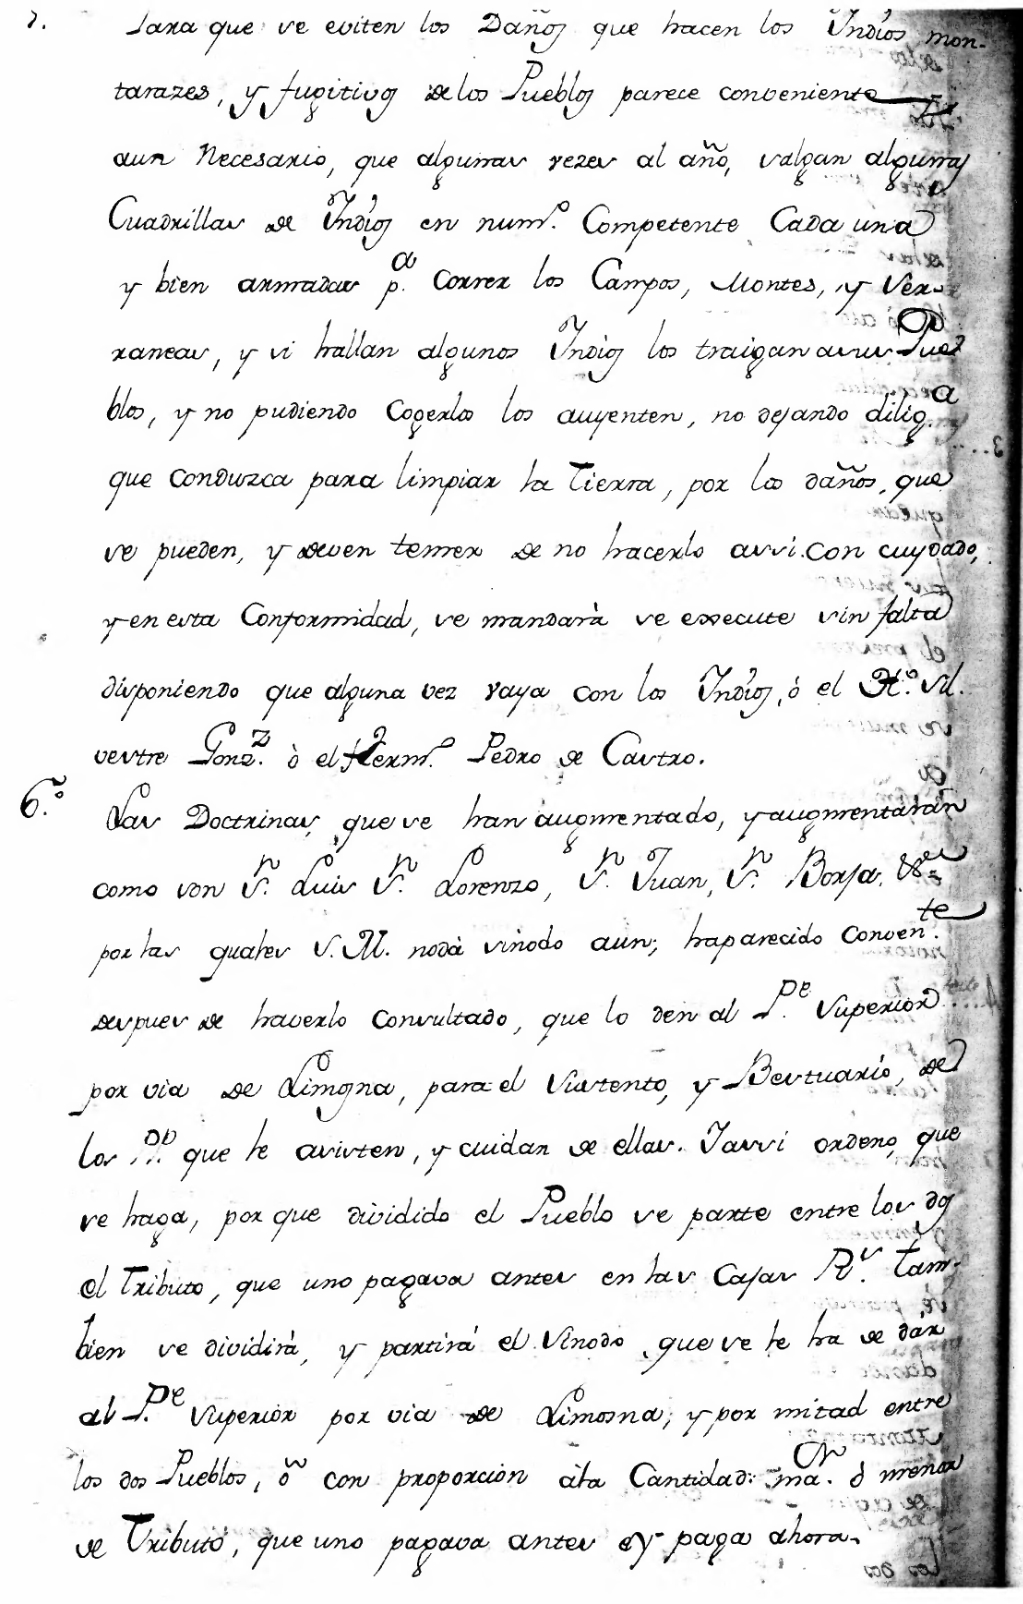 5. Para que se eviten los Daños que hacen los Indios mon-
tarazes, y fugitivos de los Pueblos parece conveniente y
aun Necesario, que algunas vezes al año, salgan algunas
Cuadrillas de Indios en numº. Competente Cada una
y bien armadas pª. correr los Campos, Montes, y Ser-
ranias, y si hallan algunos Indios los traigan a sus Pue-
blos, y no pudiendo Cogerlos los auyenten, no dejando diligª.
que conduzca para limpiar la Tierra, por los daños, que
se pueden, y deven temer de no hacerlo assi. con cuydado,
y en esta Conformidad, se mandarà se execute sin falta
disponiendo que alguna vez vaya con los Indios, ó el Hº. Sil-
vestre Gonzz. ò el Hermº. Pedro de Castro.
6.º Las Doctrinas, que se han augmentado, y augmentarán
como son Sn. Luis Sn. Lorenzo, Sn. Juan, Sn. Borja. &ca
por las quales S. M. no dà sinodo aun; ha parecido Convente.
despues de haverlo Consultado, que lo den al Pe. Superior
por via de Limosna, para el Sustento, y Bestuario, de
los PP. que le asisten, y cuidan de ellas. Y assi ordeno, que
se haga, por que dividido el Pueblo se parte entre los dos
el Tributo, que uno pagava antes en las Cajas Rs. tam-
bien se dividirá, y partirá el Sinodo, que se le ha de dár
al Pe. Superior por via de Limosna; y por mitad entre
los dos Pueblos, ó con proporcion á la Cantidad: maͬ. ò menor
de Tributo, que uno pagava antes ey paga ahora.